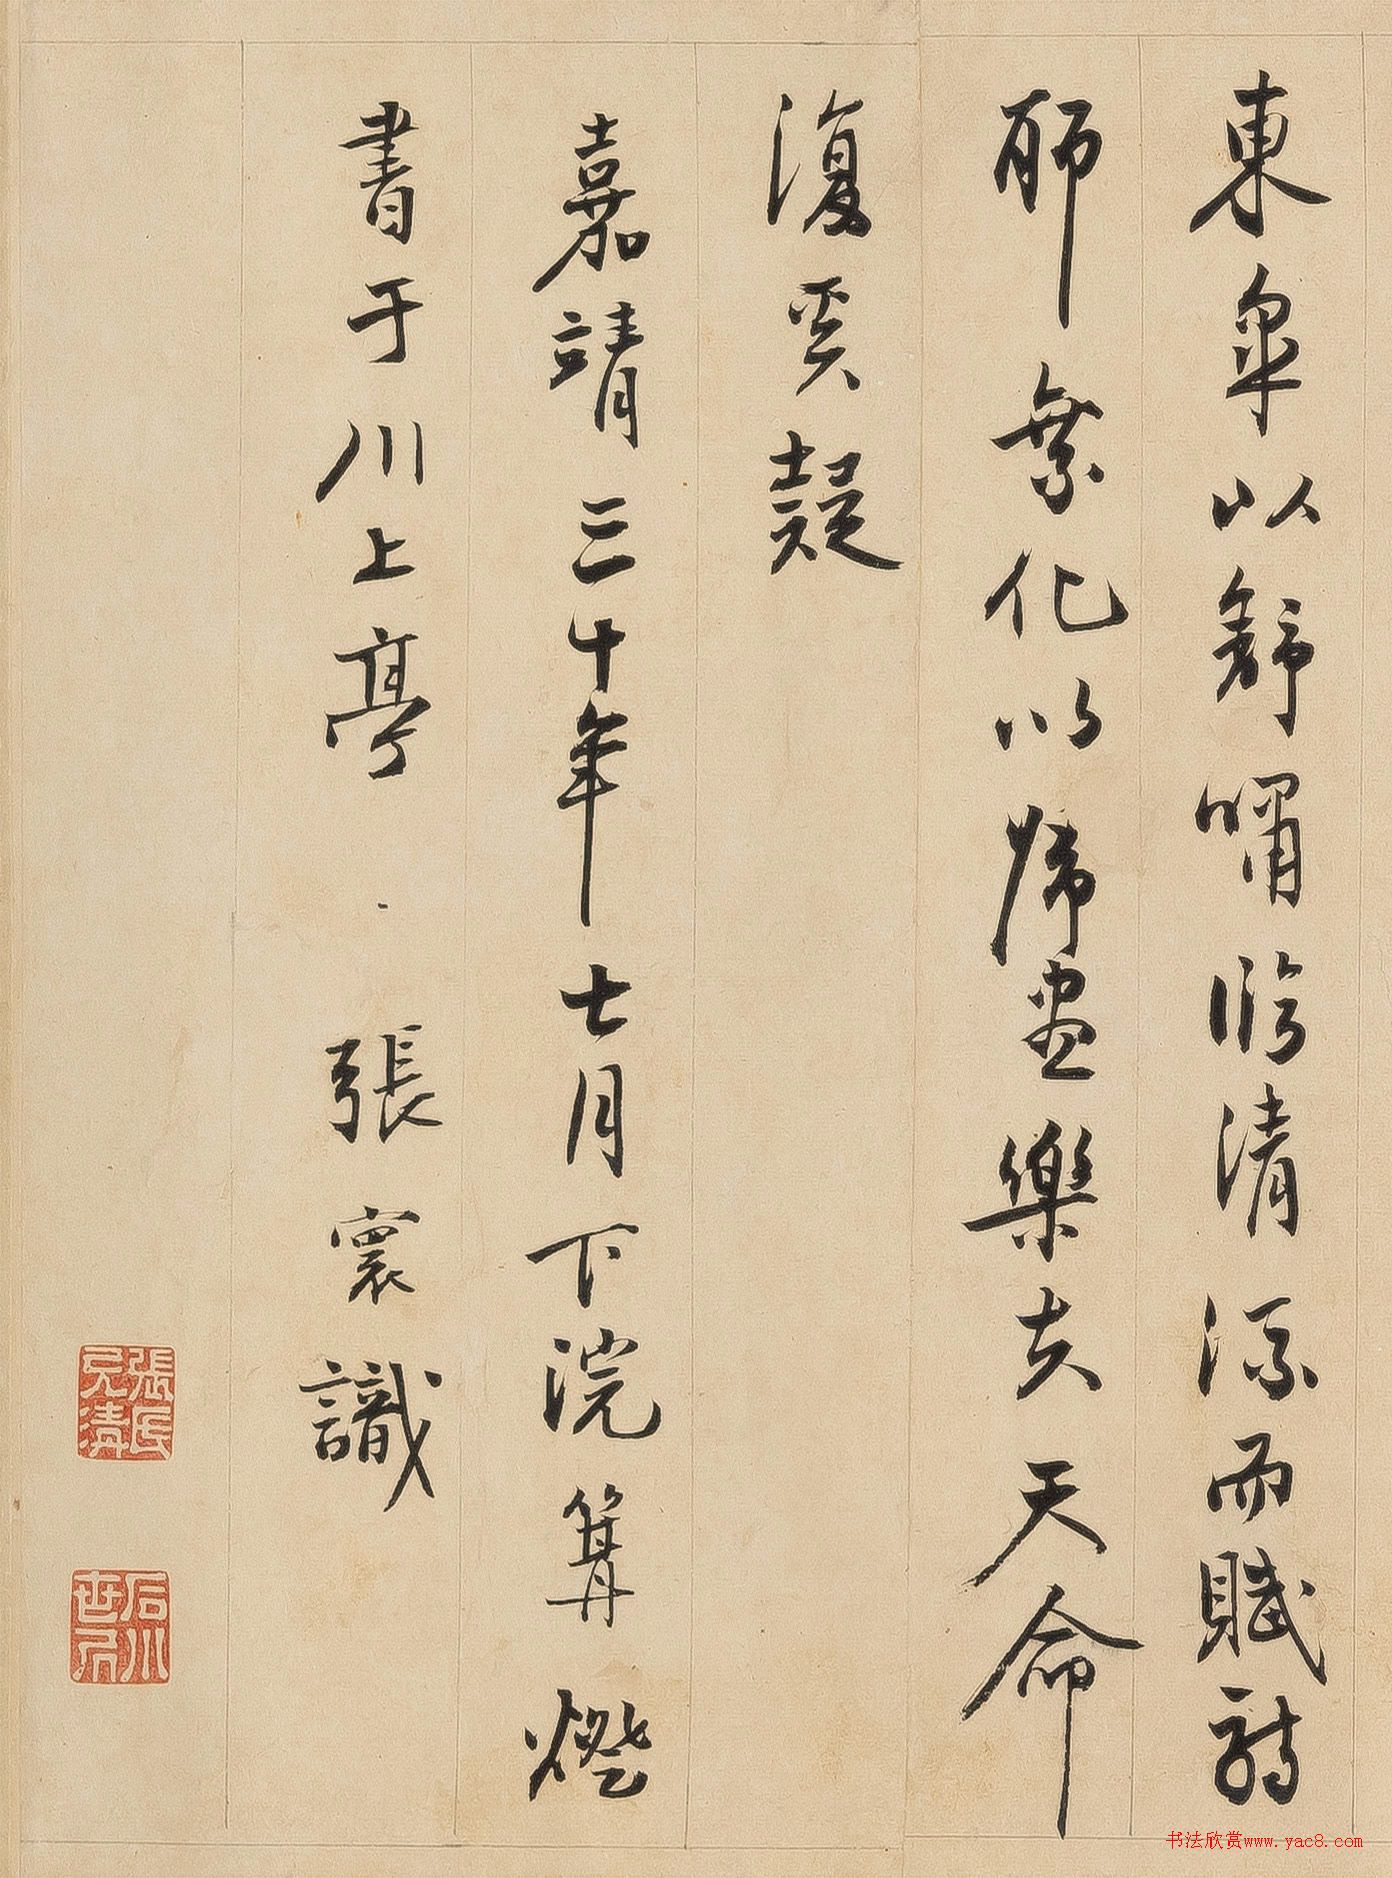 東皋以舒嘯臨清流而賦詩
聊乘化以歸盡樂夫天命
復奚疑
嘉靖三十年七月下浣篝燈
書于川上亭 張寰識
張氏允清
石川世居
书法欣赏www.yac8.com